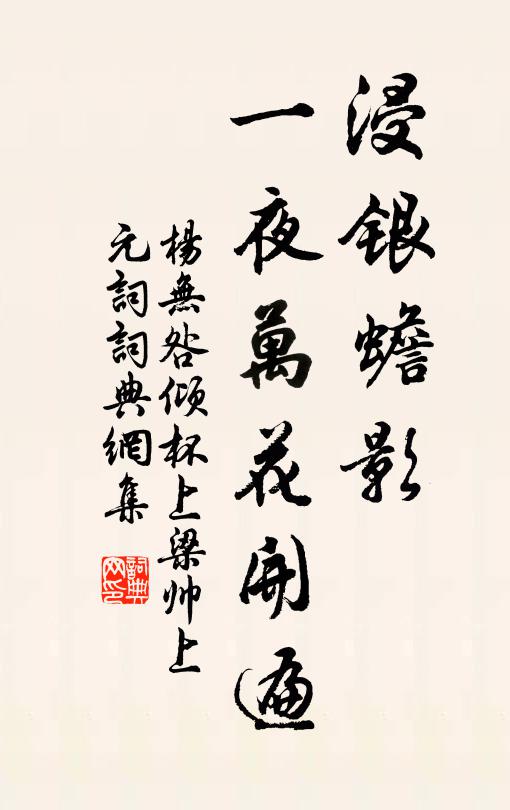 浸銀蟾影
一夜萬花開遍
楊無咎傾杯上梁帅上
元詞詞典網集
詞典
网印